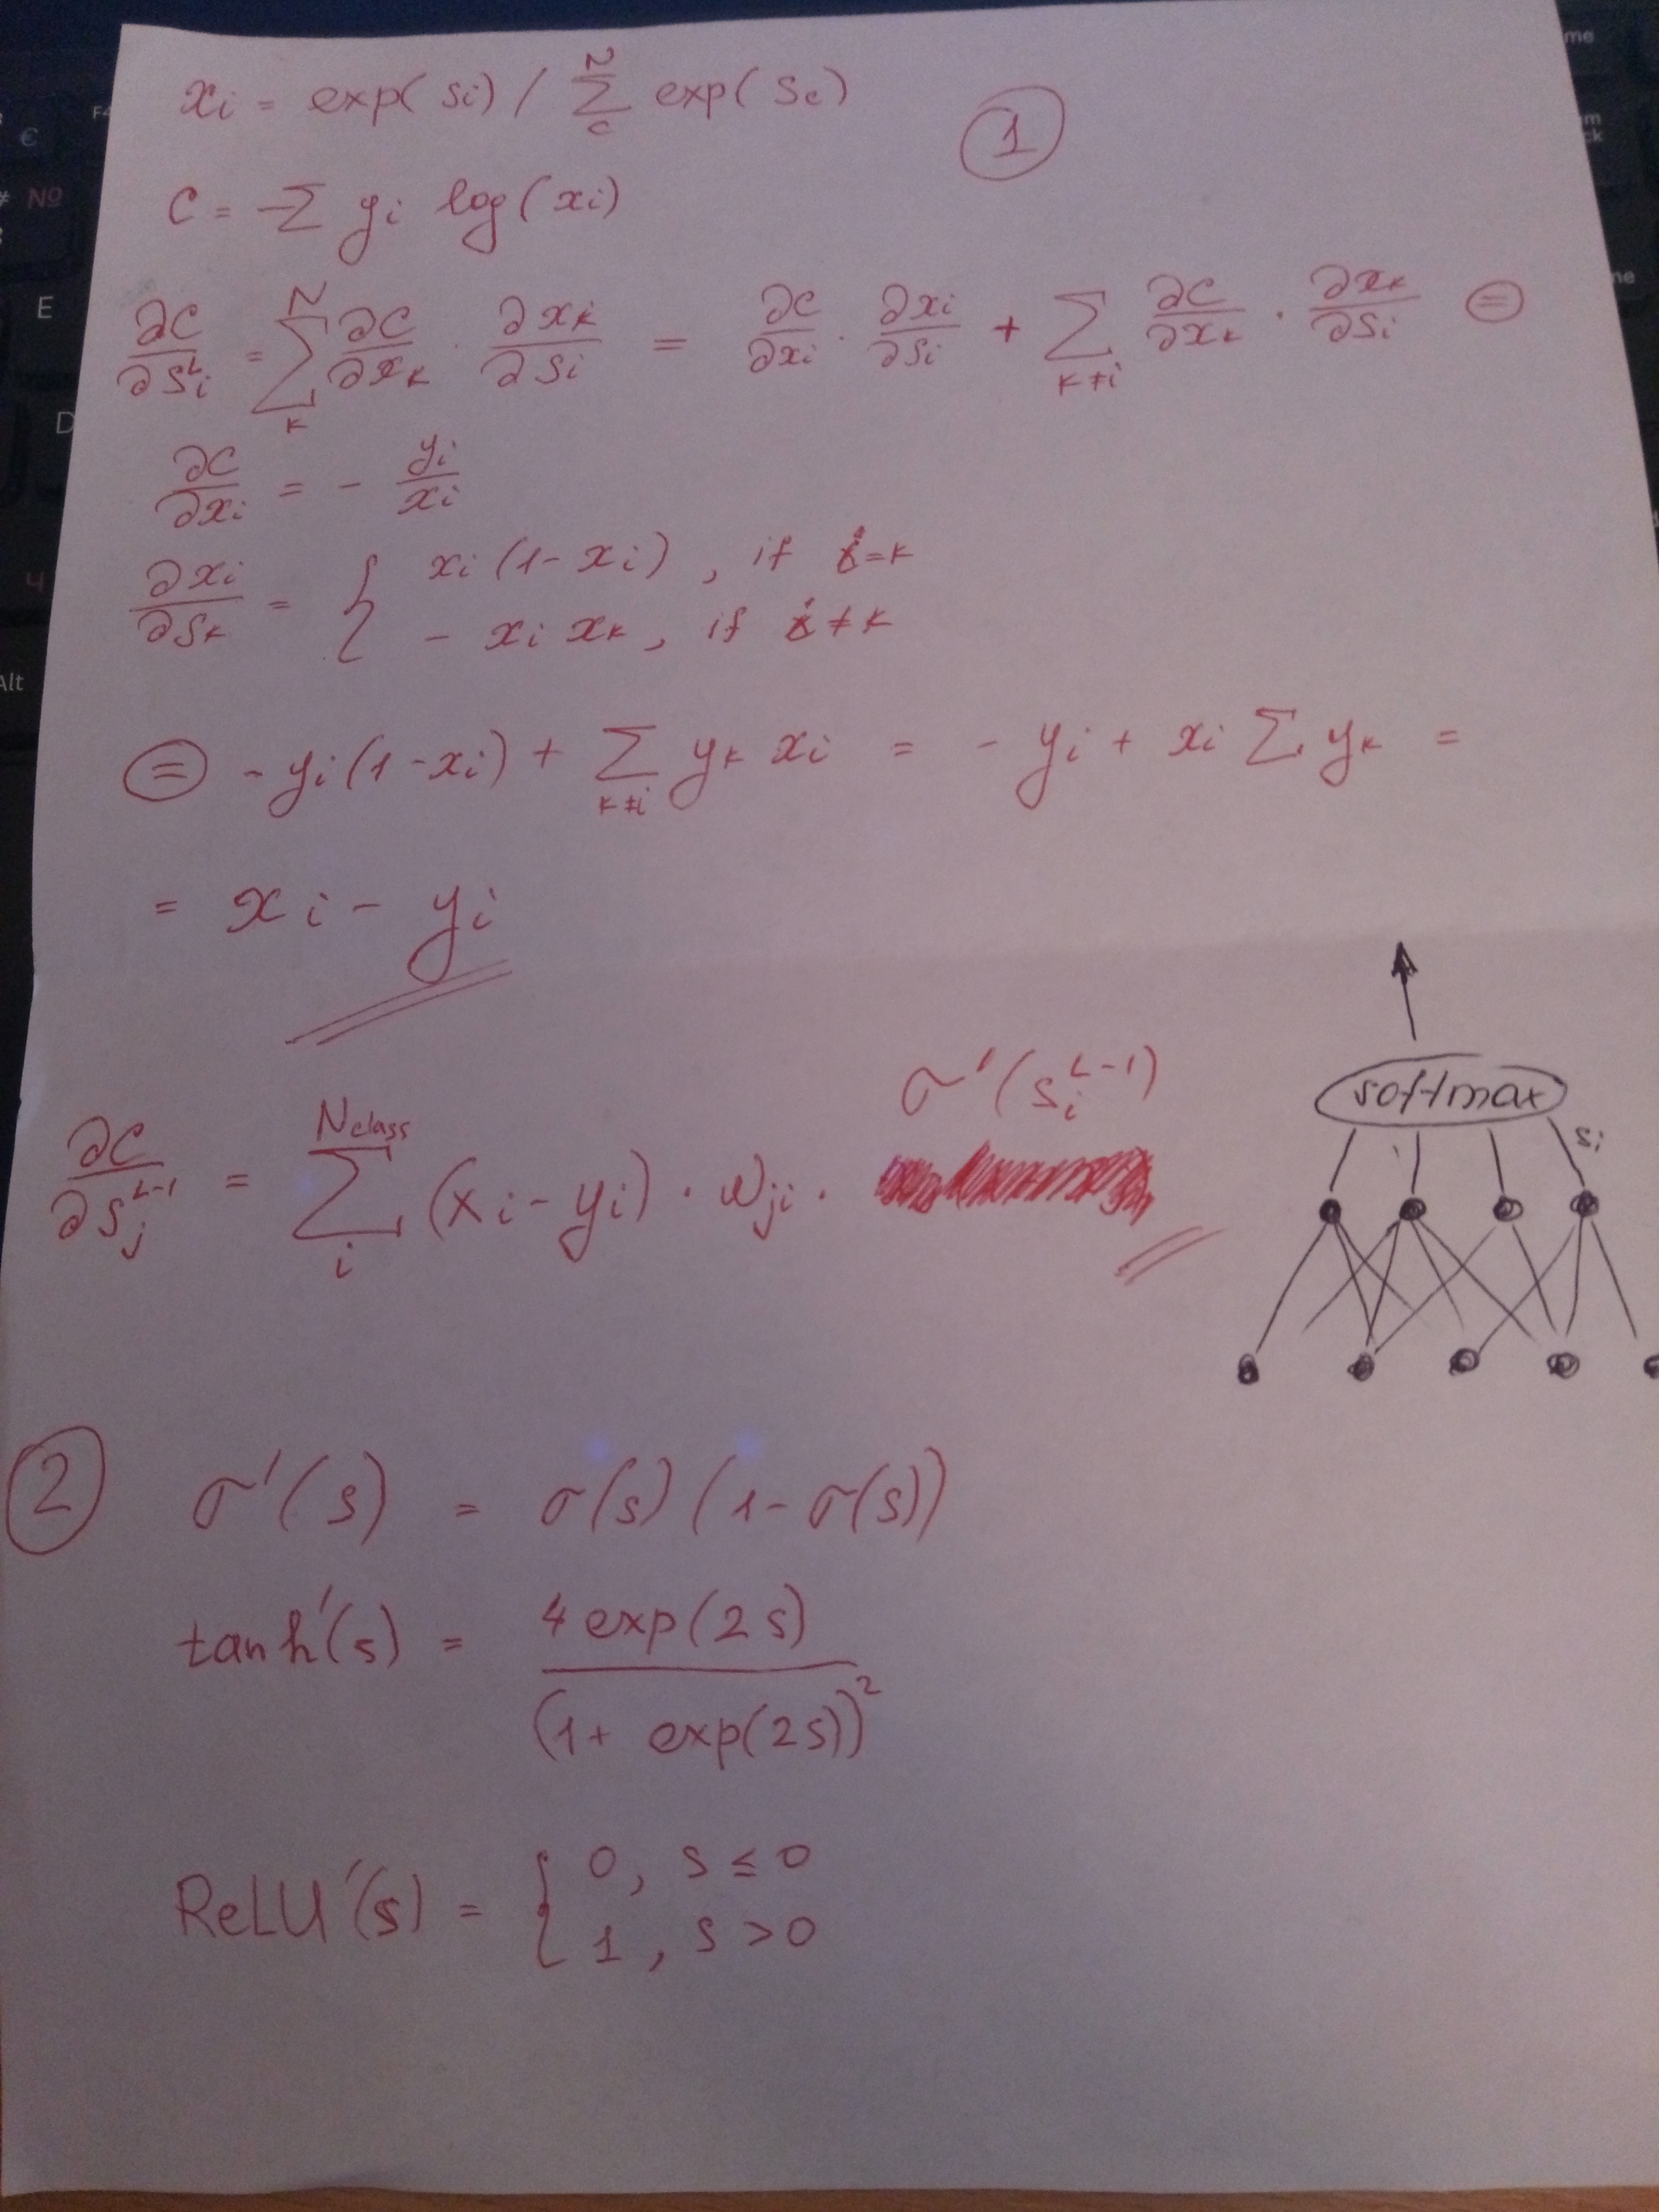 xi = exp(si) / Σ_c^N exp(sc)
1
C = -Σ yi log(xi)
∂C/∂s_i^L = Σ_k^N ∂C/∂xk · ∂xk/∂si = ∂C/∂xi · ∂xi/∂si + Σ_{k≠i} ∂C/∂xk · ∂xk/∂si (=)
∂C/∂xi = - yi/xi
∂xi/∂sk = { xi(1-xi), if i=k
- xi xk, if i≠k
(=) -yi(1-xi) + Σ_{k≠i} yk xi = - yi + xi Σ yk =
= xi - yi
∂C/∂s_j^{L-1} = Σ_i^{Nclass} (xi - yi) · wji · σ'(s_i^{L-1})
softmax
si
2 σ'(s) = σ(s)(1-σ(s))
tanh'(s) = 4 exp(2s) / (1+ exp(2s))^2
ReLU'(s) = { 0, s ≤ 0
1, s > 0